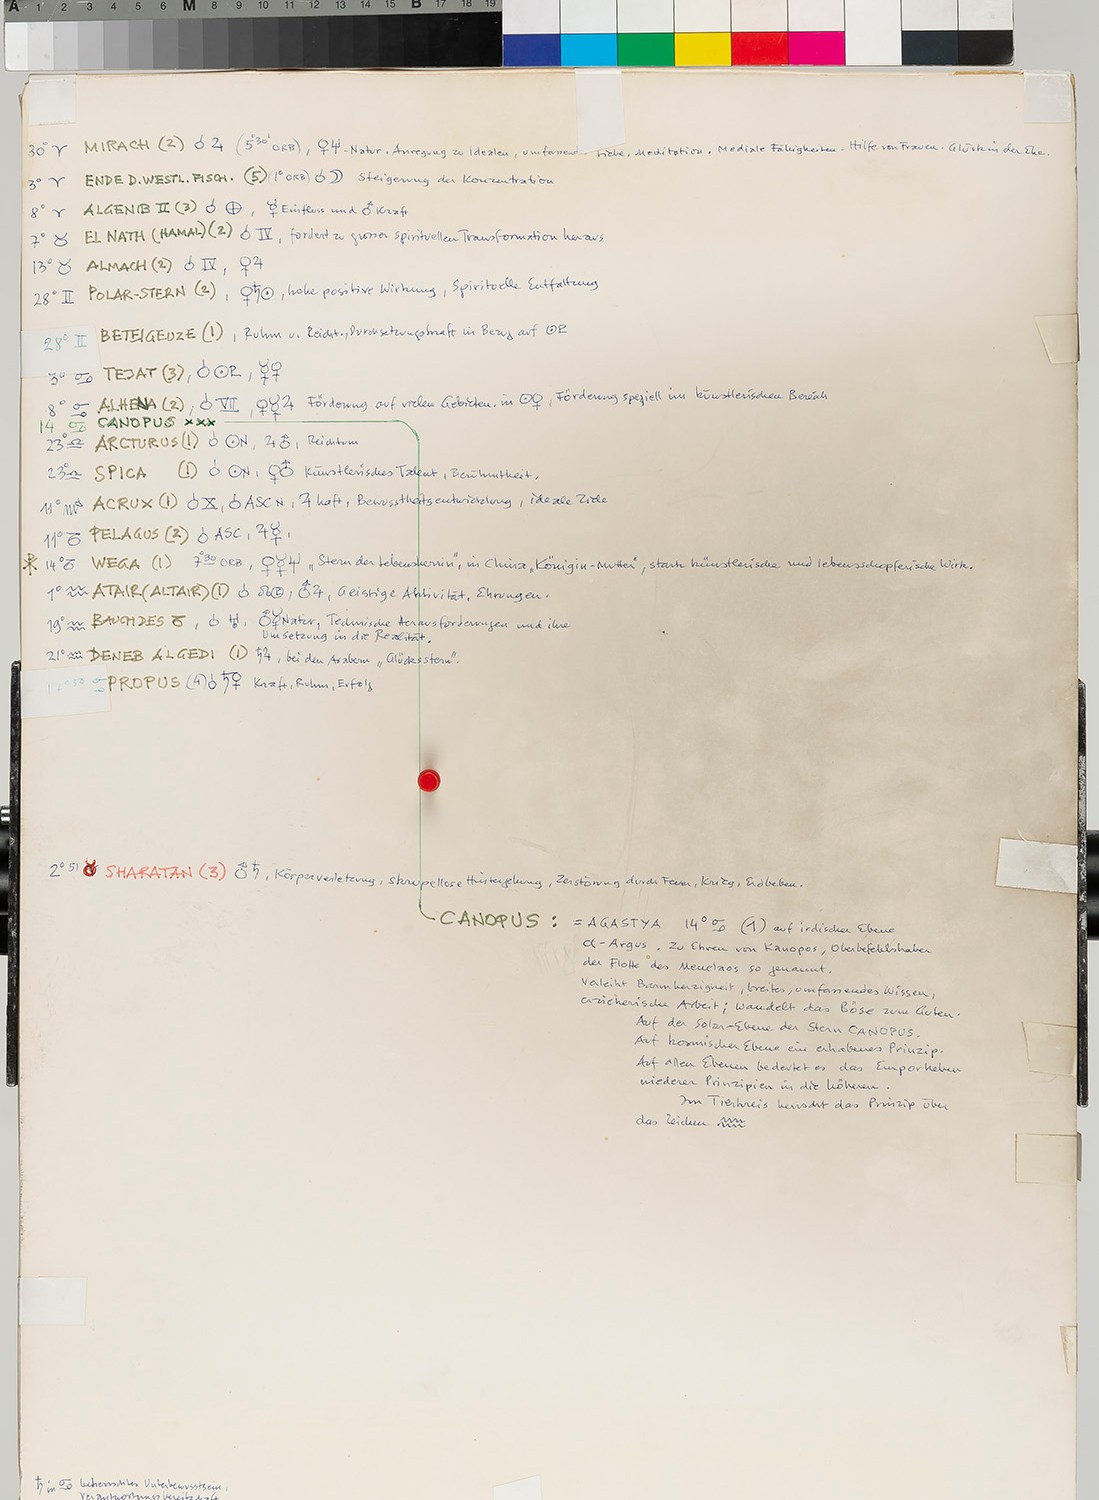 A 1 2 3 4 5 6 M 8 9 10 11 12 13 14 15 B 17 18 19
30° ♈ MIRACH (2) ☌ ♃ (5°30' ORB), ♀♆-Natur. Anregung zu Idealen, umfassend Liebe, Meditation. Mediale Fähigkeiten. Hilfe von Frauen. Glück in der Ehe.
3° ♈ ENDE D. WESTL. FISCH. (5) (1° ORB) ☌ ☽ Steigerung der Konzentration
8° ♈ ALGENIB II (3) ☌ ⊕, ☿ Einfluss und ♂ Kraft
7° ♉ EL NATH (HAMAL) (2) ☌ IV, fordert zu grosser spirituellen Transformation heraus
13° ♉ ALMACH (2) ☌ IV, ♀♃
28° ♊ POLAR-STERN (2), ♀♄☉, hohe positive Wirkung, Spirituelle Entfaltung
28° ♊ BETEIGEUZE (1), Ruhm u. Reicht., Durchsetzungskraft in Bezug auf ☉R
3° ♋ TEJAT (3), ☌ ☉R, ☿♀
8° ♋ ALHENA (2), ☌ VII, ♀☿♃ Förderung auf vielen Gebieten. in ☉♀, Förderung speziell im künstlerischen Bereich
14 ♋ CANOPUS xxx
23° ♎ ARCTURUS (1) ☌ ☉N, ♃♂, Reichtum
23° ♎ SPICA (1) ☌ ☉N, ♀♂ Künstlerisches Talent, Berühmtheit,
11° ♏ ACRUX (1) ☌ X, ☌ ASC N, ♃ haft, Bewusstheitsentwicklung, ideale Ziele
11° ♑ PELAGUS (2) ☌ ASC, ♃☿,
14° ♑ WEGA (1) 7°30 ORB, ♀☿♆ „Stern der Lebensherrin", in China „Königin-Mutter", stark künstlerische und lebensschöpferische Wirk.
1° ♒ ATAIR (ALTAIR) (1) ☌ ☊, ♂♃, Geistige Aktivität, Ehrungen.
19° ♒ BAUCH DES ♑, ☌ ♅, ♂☿ Natur, Technische Herausforderungen und ihre
Umsetzung in die Realität.
21° ♒ DENEB ALGEDI (1) ♄♃, bei den Arabern „Glücksstern".
♋ PROPUS (4) ☌ ♄♀ Kraft, Ruhm, Erfolg
2° 51 ♉ SHARATAN (3) ♂♄, Körperverletzung, skrupellose Hintergehung, Zerstörung durch Feuer, Krieg, Erdbeben.
CANOPUS : = AGASTYA 14° ♋ (1) auf irdischer Ebene
α-Argus. Zu Ehren von Kanopos, Oberbefehlshaber
der Flotte des Menelaos so genannt.
Verleiht Barmherzigkeit, breites, umfassendes Wissen,
erzieherische Arbeit; wandelt das Böse zum Guten.
Auf der Solar-Ebene der Stern CANOPUS.
Auf kosmischer Ebene ein erhabenes Prinzip.
Auf allen Ebenen bedeutet es das Emporheben
niederer Prinzipien in die höheren.
Im Tierkreis herrscht das Prinzip über
das Zeichen ♒
♄ in ♋ beherrschtes Unterbewusstsein,
Verantwortungsbereitschaft